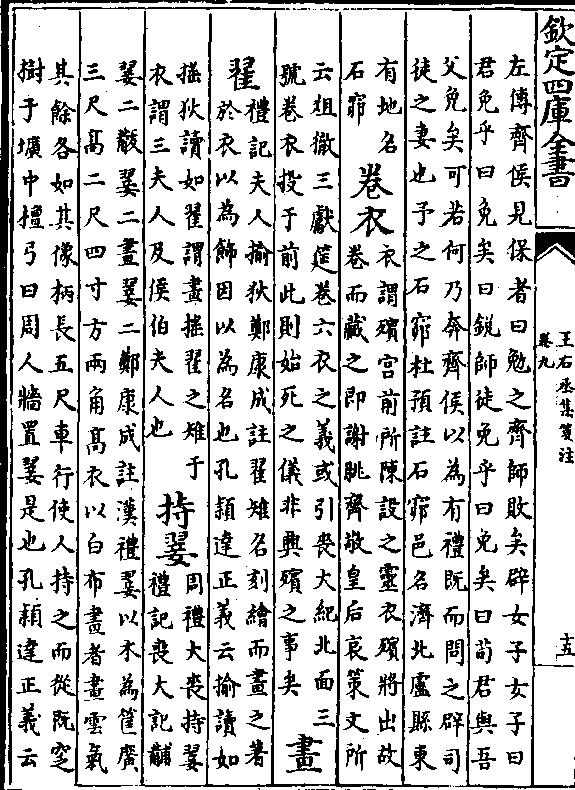 欽定四庫全書
王右丞集箋注
卷九
十五
左傳齊侯見保者曰勉之齊師敗矣辟女子女子曰
君免乎曰免矣曰銳師徒免乎曰免矣曰茍君與吾
父免矣可若何乃奔齊侯以為有禮既而問之辟司
徒之妻也予之石窌杜預註石窌邑名濟北盧縣東
有地名
石窌
卷衣
衣謂殯宮前所陳設之靈衣殯將出故
卷而藏之即謝朓齊敬皇后哀策文所
云俎徹三獻筵卷六衣之義或引喪大紀北面三
號卷衣投于前此則始死之儀非興殯之事矣
畫
翟
禮記夫人揄狄鄭康成註翟雉名刻繪而畫之著
於衣以為飾因以為名也孔頴達正義云揄讀如
搖狄讀如翟謂畫搖翟之雉于
衣謂三夫人及侯伯夫人也
持翣
周禮大喪持翣
禮記喪大記黼
翣二黻翣二畫翣二鄭康成註漢禮翣以木為筐廣
三尺髙二尺四寸方兩角髙衣以白布畫者畫雲氣
其餘各如其像柄長五尺車行使人持之而從既窆
樹于壙中檀弓曰周人牆置翣是也孔頴達正義云